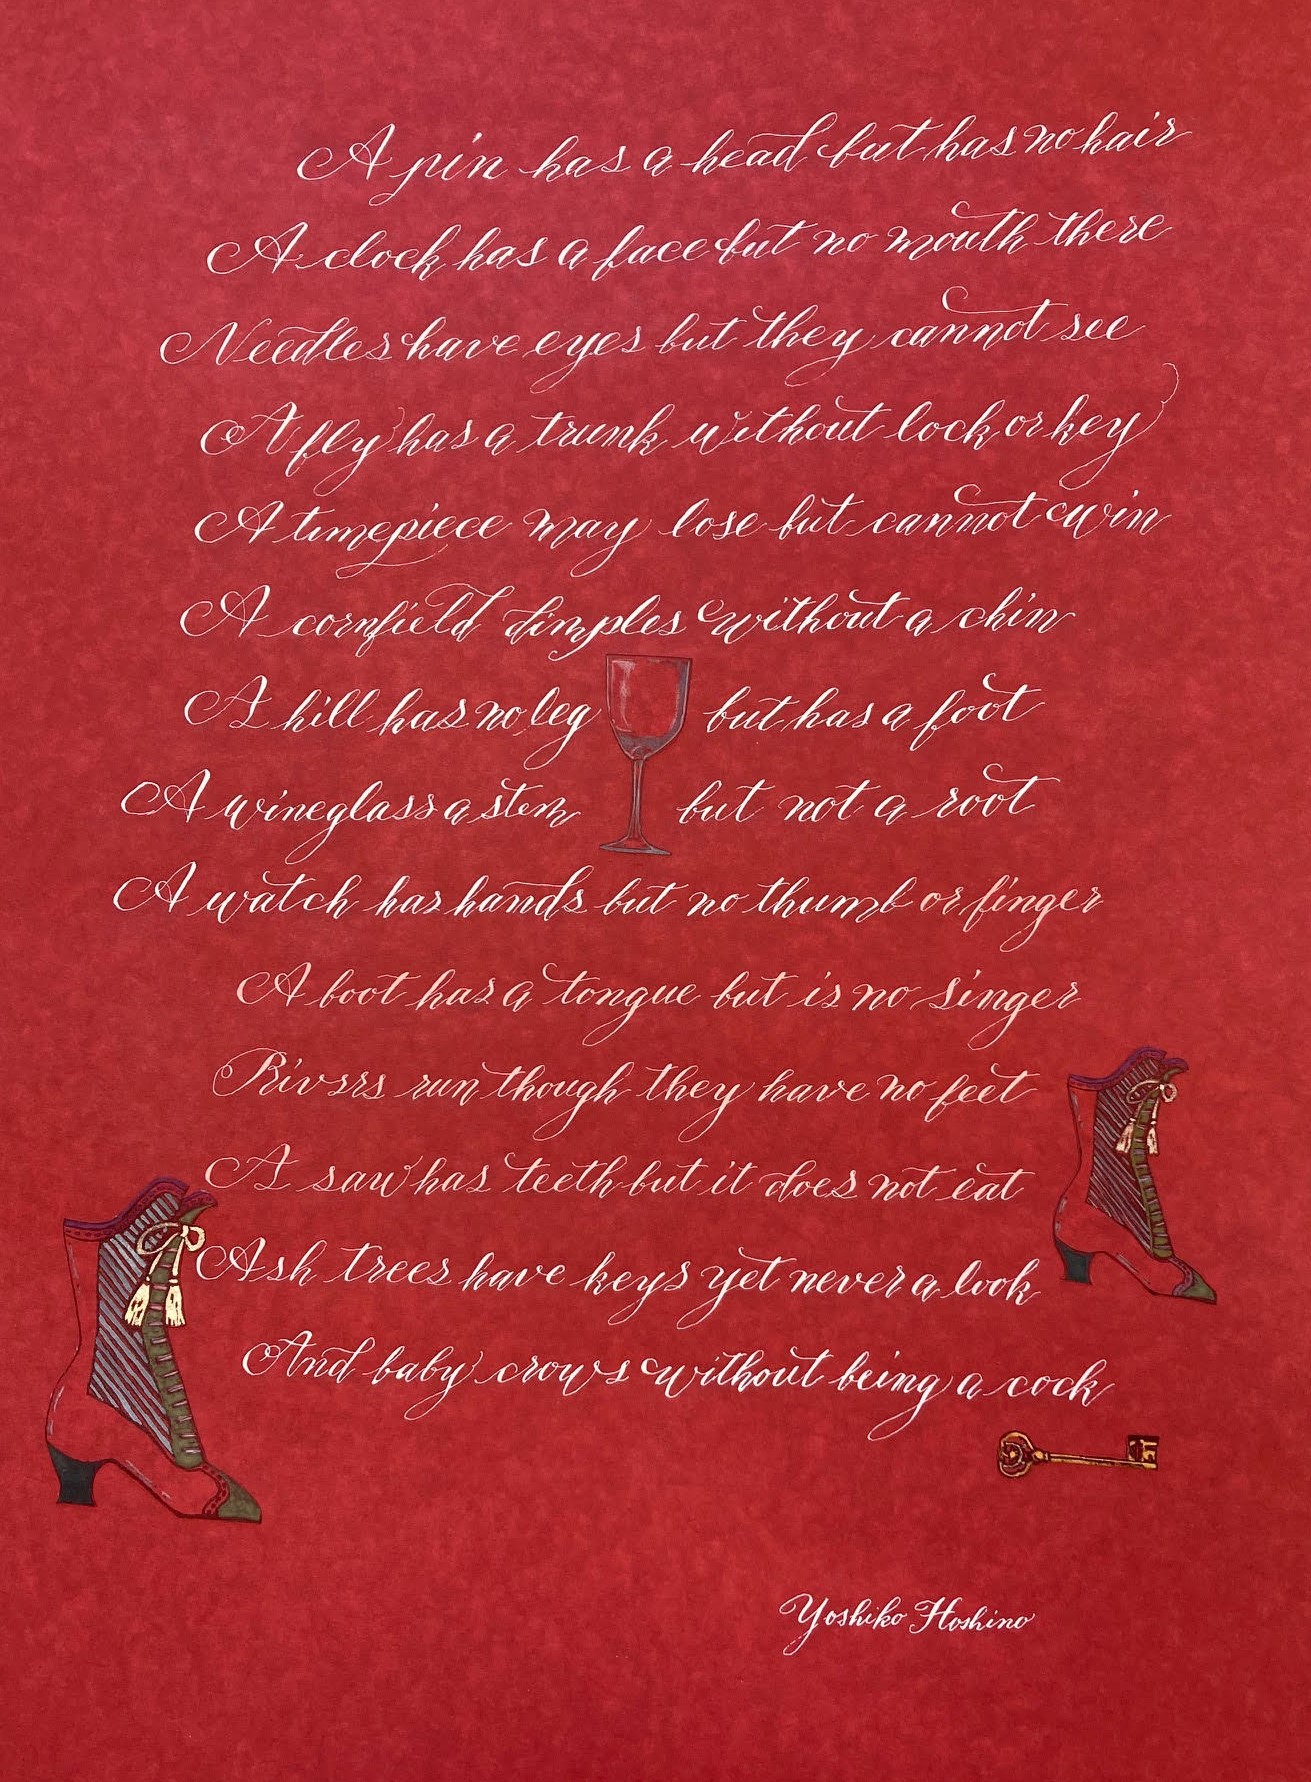 A pin has a head but has no hair
A clock has a face but no mouth there
Needles have eyes but they cannot see
A fly has a trunk without lock or key
A timepiece may lose but cannot win
A cornfield dimples without a chin
A hill has no leg but has a foot
A wineglass a stem but not a root
A watch has hands but no thumb or finger
A boot has a tongue but is no singer
Rivers run though they have no feet
A saw has teeth but it does not eat
Ash trees have keys yet never a look
And baby crows without being a cock
Yoshiko Hoshino